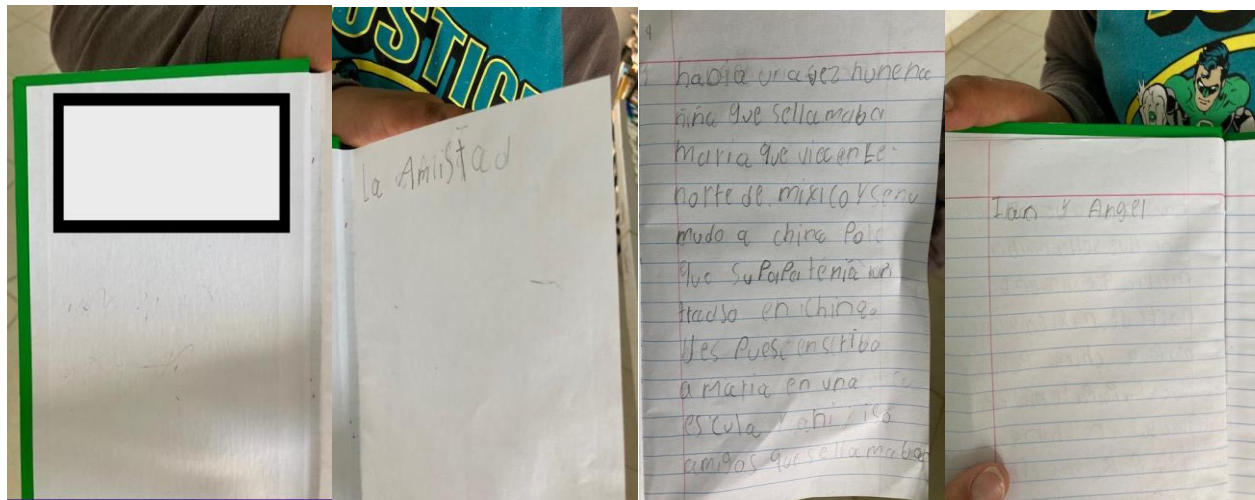 USTIC
la Amistad
había una vez hunena
niña que sellamaba
maria que vice ente
norte de mixico y senu
mudo a china Pole
que su PaPa tenía un
tradso en ichina.
des Pues enscribo
a maria en una
escula y ahi iso
amigos que sellamaban
Ian y Angel